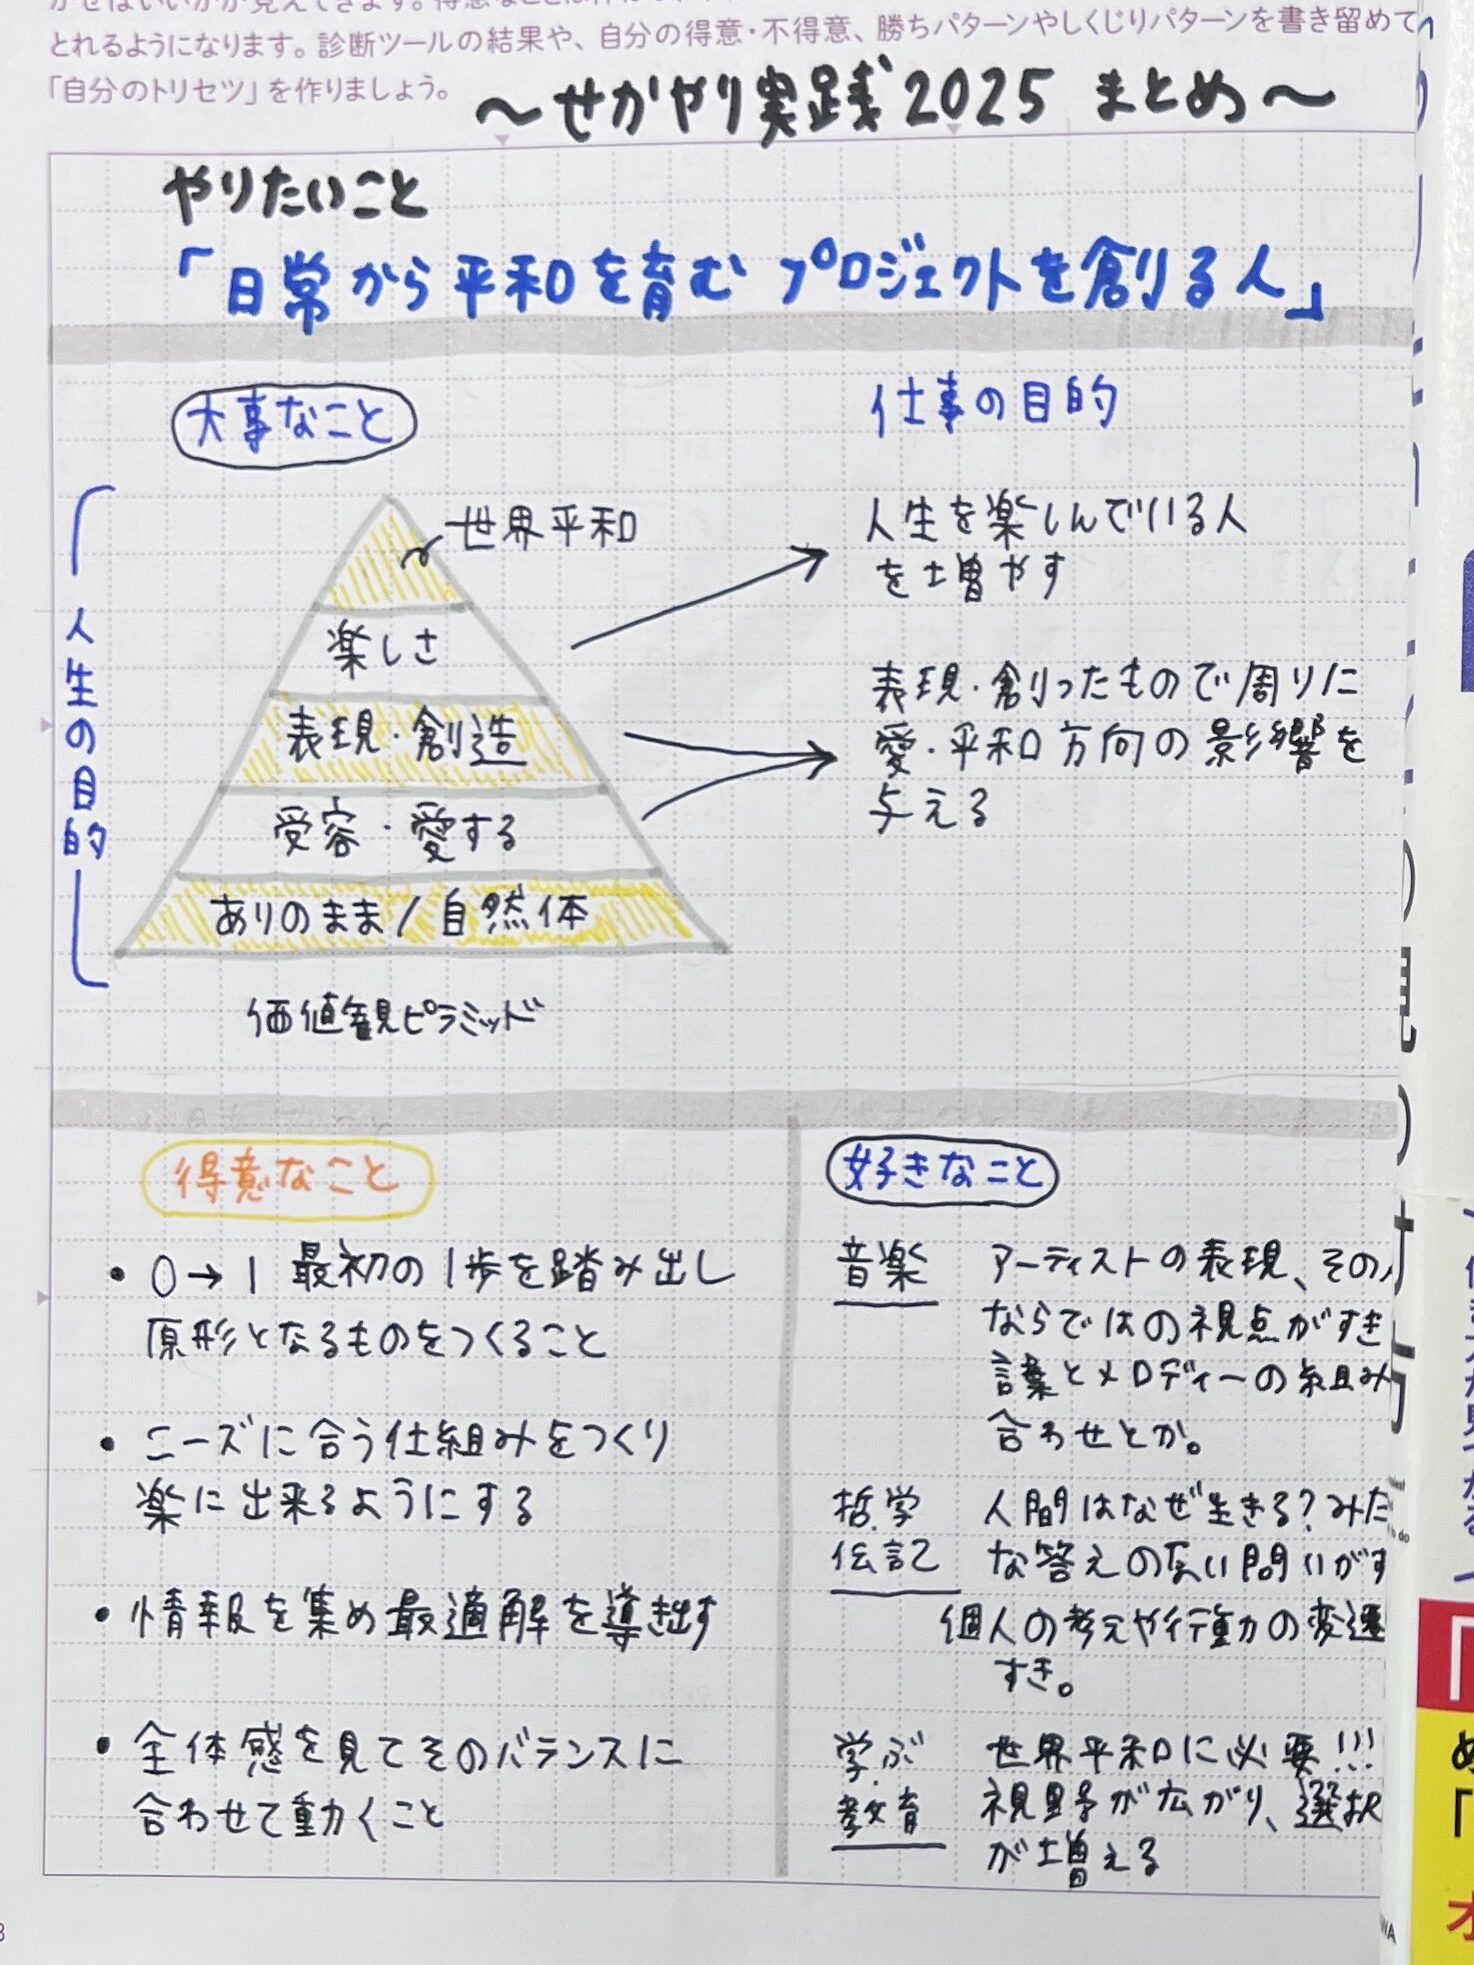 とれるようになります。診断ツールの結果や、自分の得意・不得意、勝ちパターンやしくじりパターンを書き留めて
「自分のトリセツ」を作りましょう。
〜せかやり実践2025 まとめ〜
やりたいこと
「日常から平和を育むプロジェクトを創る人」
大事なこと
人生の目的
世界平和
楽しさ
表現・創造
受容・愛する
ありのまま/自然体
価値観ピラミッド
仕事の目的
人生を楽しんでいる人
を増やす
表現・創ったもので周りに
愛・平和方向の影響を
与える
得意なこと
・0→1 最初の1歩を踏み出し
原形となるものをつくること
・ニーズに合う仕組みをつくり
楽に出来るようにする
・情報を集め最適解を導き出す
・全体感を見てそのバランスに
合わせて動くこと
好きなこと
音楽
アーティストの表現、その
ならではの視点がすき
言葉とメロディーの組み
合わせとか。
哲学
伝記
人間はなぜ生きる?みた
な答えのない問いがす
個人の考えや行動の変遷
すき。
学ぶ
教育
世界平和に必要!!!
視野が広がり、選択
が増える
の見つけ方